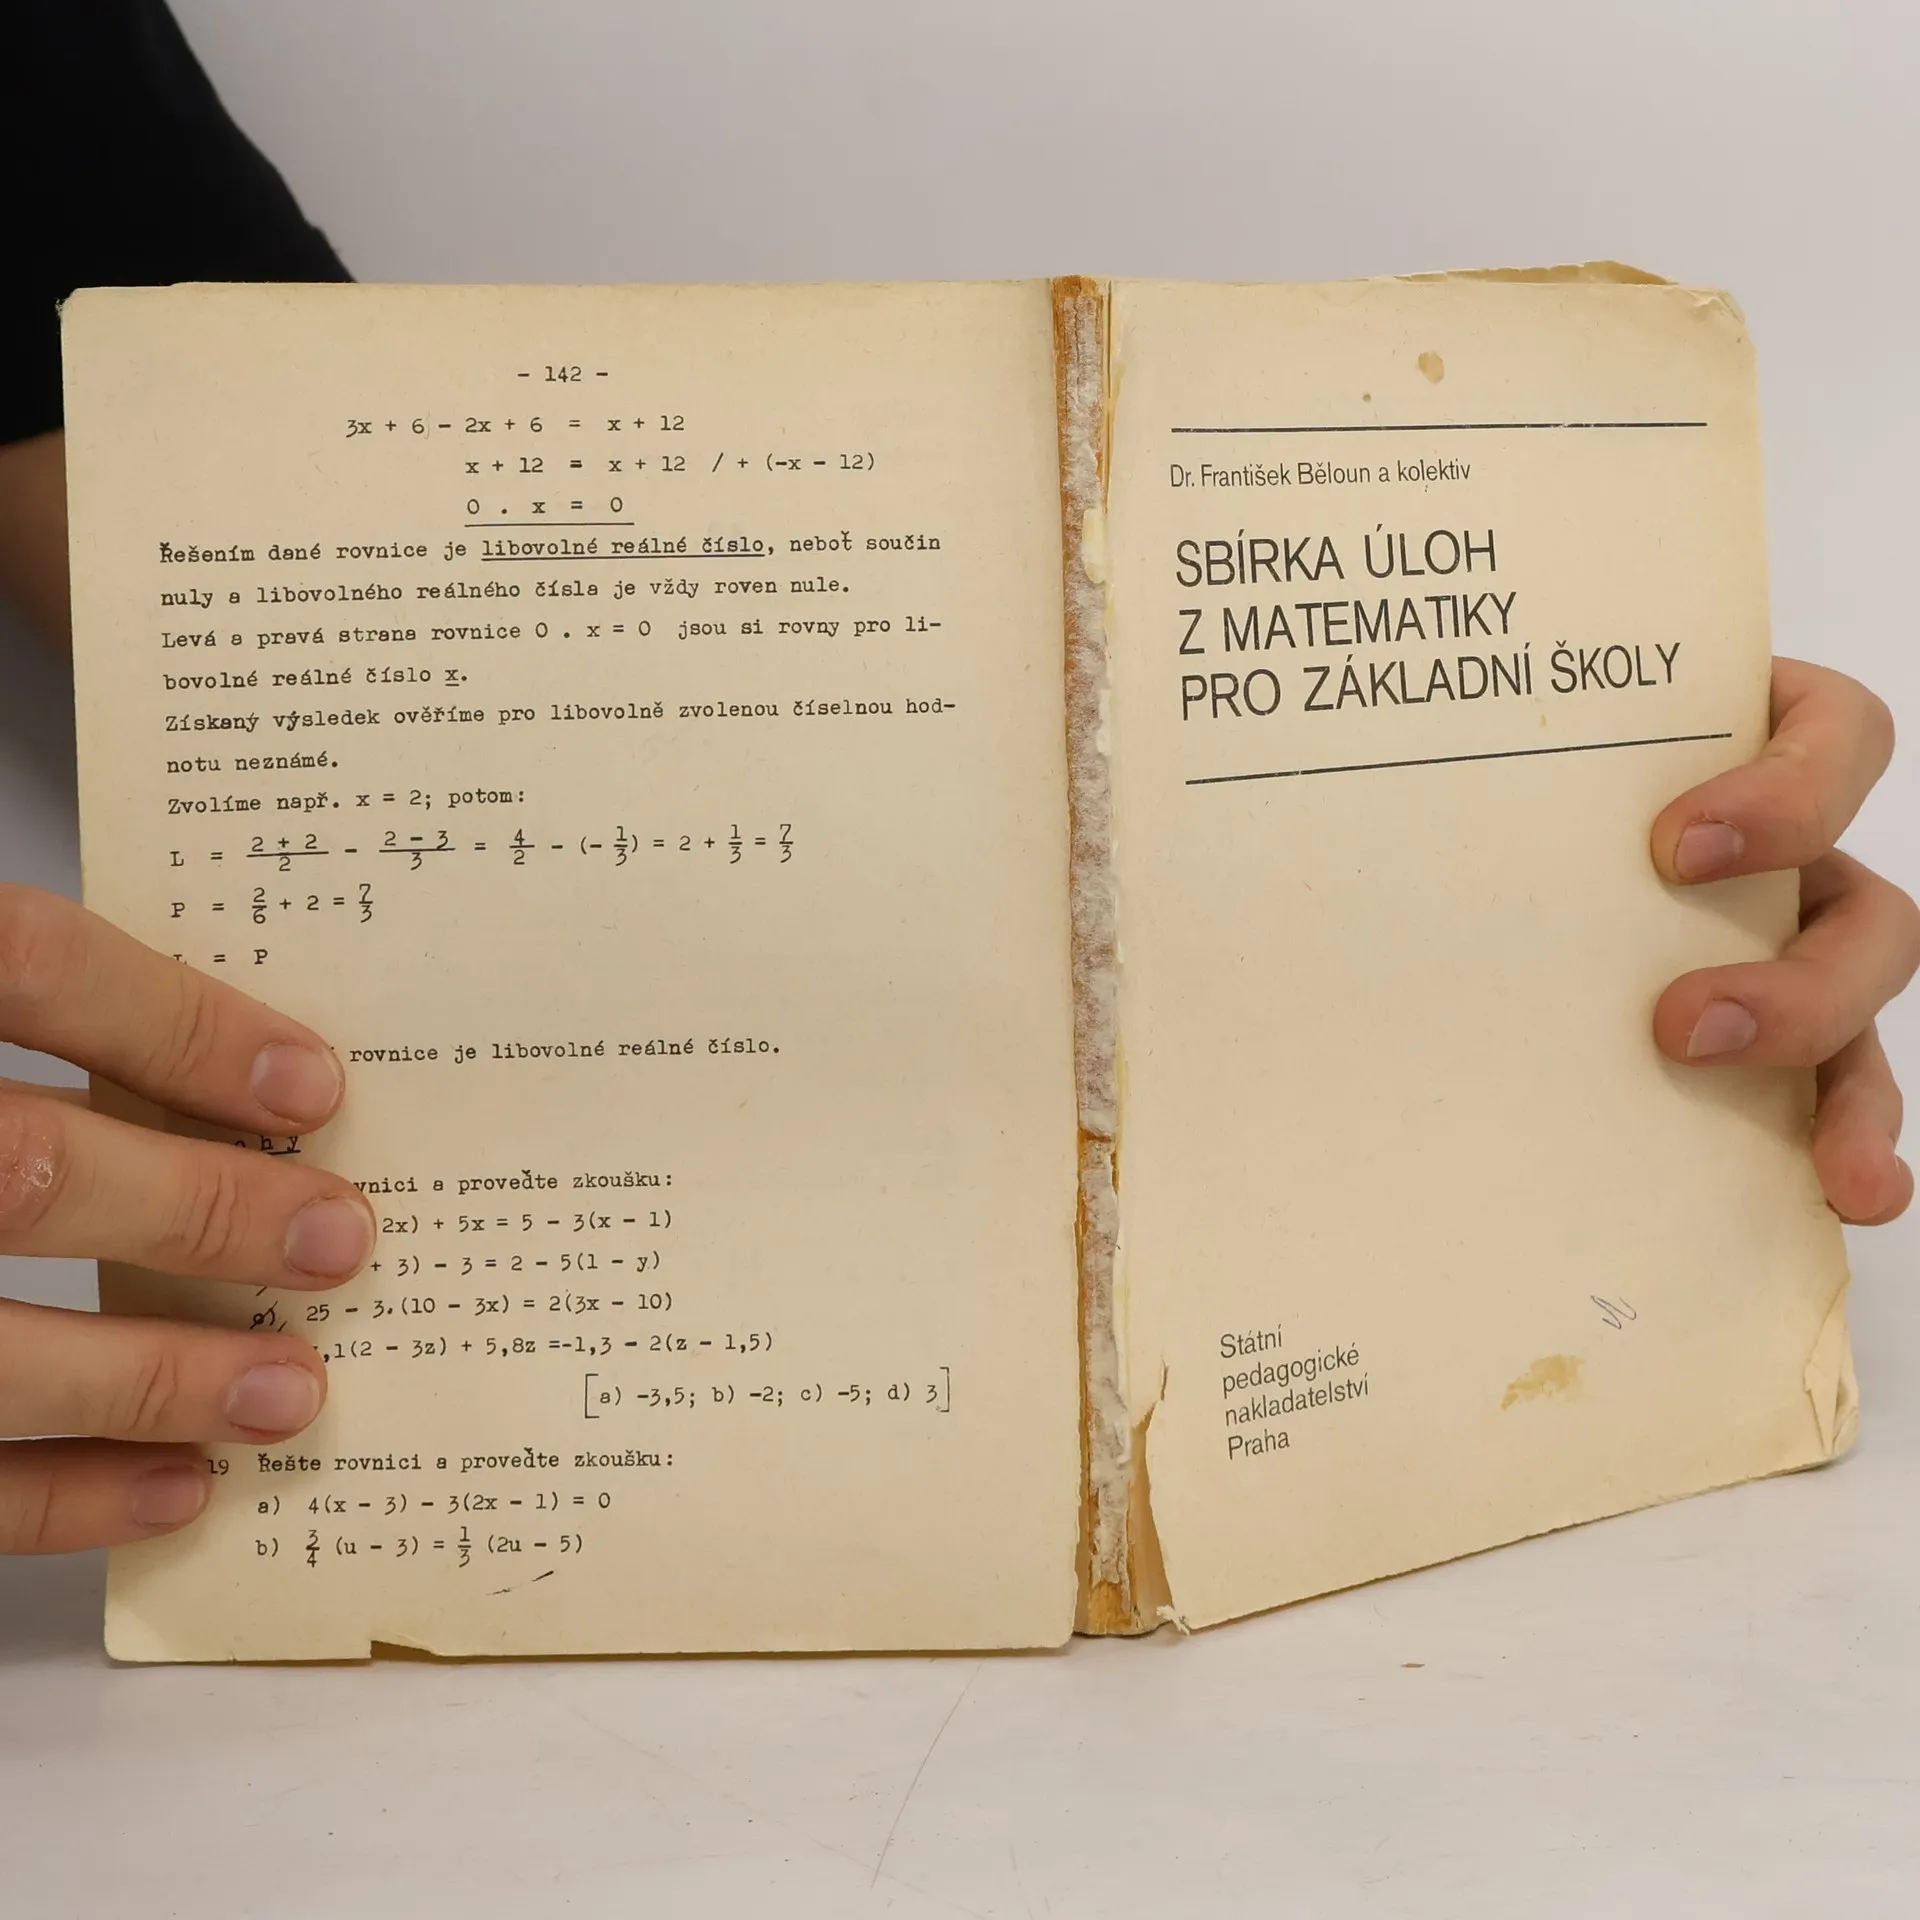 - 142 -
3x + 6 - 2x + 6 = x + 12
x + 12 = x + 12 / + (-x - 12)
0 . x = 0
Řešením dané rovnice je libovolné reálné číslo, neboť součin
nuly a libovolného reálného čísla je vždy roven nule.
Levá a pravá strana rovnice 0 . x = 0 jsou si rovny pro li-
bovolné reálné číslo x.
Získaný výsledek ověříme pro libovolně zvolenou číselnou hod-
notu neznámé.
Zvolíme např. x = 2; potom:
L = \frac{2 + 2}{2} - \frac{2 - 3}{3} = \frac{4}{2} - (-\frac{1}{3}) = 2 + \frac{1}{3} = \frac{7}{3}
P = \frac{2}{6} + 2 = \frac{7}{3}
= P
rovnice je libovolné reálné číslo.
a proveďte zkoušku:
2x) + 5x = 5 - 3(x - 1)
+ 3) - 3 = 2 - 5(1 - y)
25 - 3.(10 - 3x) = 2(3x - 10)
,1(2 - 3z) + 5,8z =-1,3 - 2(z - 1,5)
[a) -3,5; b) -2; c) -5; d) 3]
19 Řešte rovnici a proveďte zkoušku:
a) 4(x - 3) - 3(2x - 1) = 0
b) \frac{3}{4} (u - 3) = \frac{1}{3} (2u - 5)
Dr. František Běloun a kolektiv
SBÍRKA ÚLOH
Z MATEMATIKY
PRO ZÁKLADNÍ ŠKOLY
Státní
pedagogické
nakladatelství
Praha